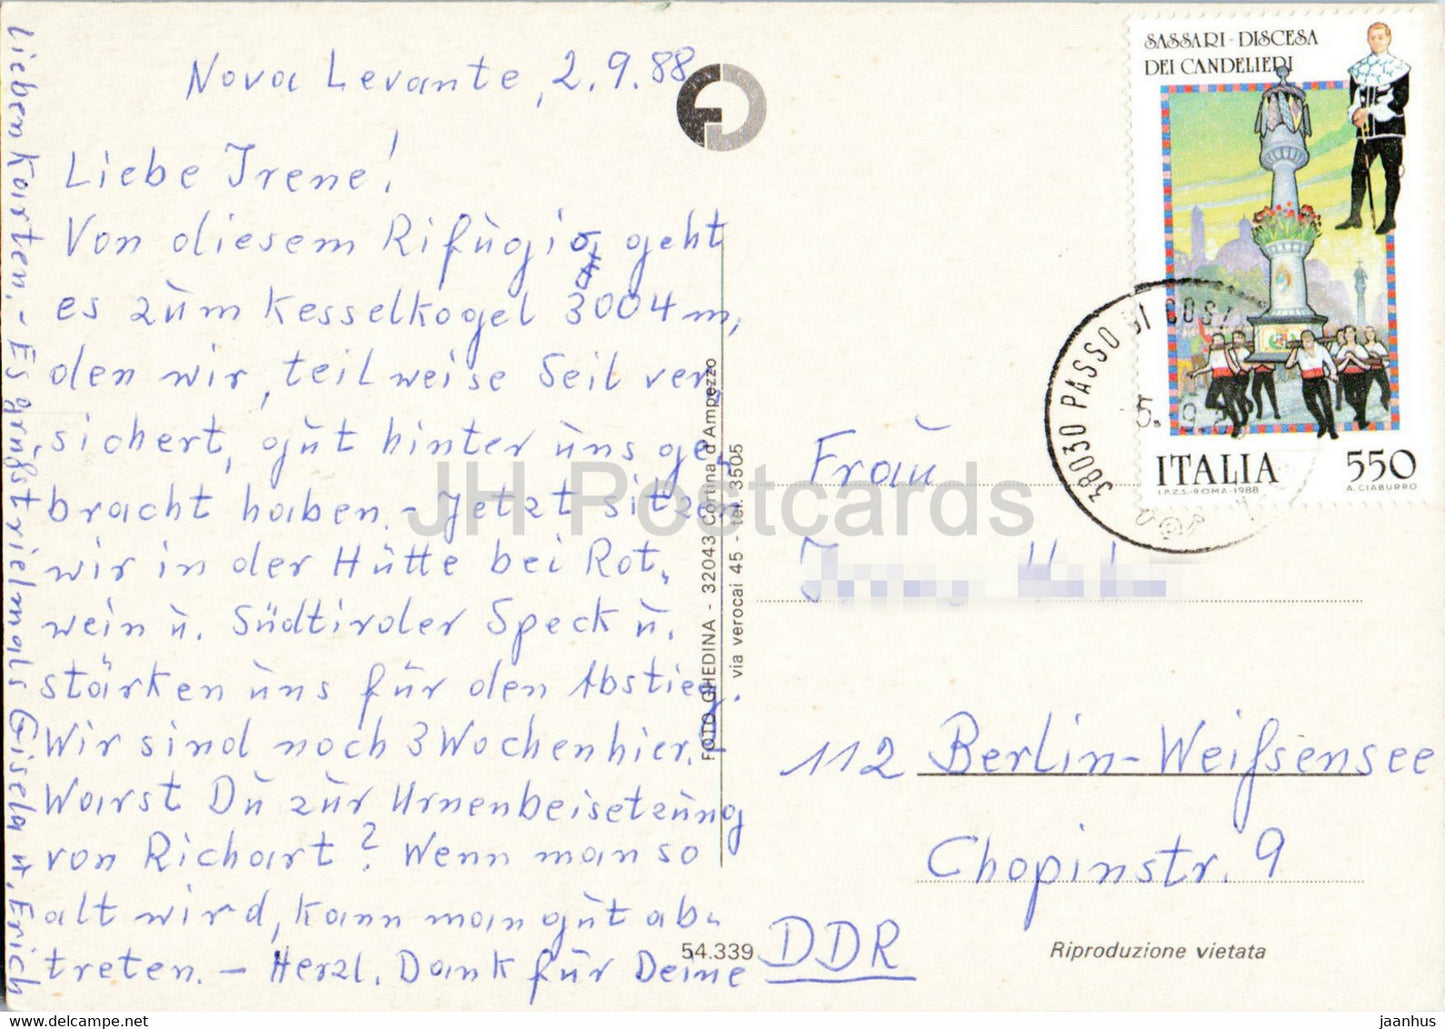 Nova Levante, 2.9.88
Liebe Irene!
Von diesem Rifugio geht
es zum Kesselkogel 3004 m,
den wir, teilweise Seil ver,
sichert, gut hinter uns ge,
bracht haben. - Jetzt sitzen
wir in der Hütte bei Rot,
wein u. Südtiroler Speck u.
stärken uns für den Abstieg.
Wir sind noch 3 Wochen hier.
Warst Du zur Urnenbeisetzung
von Richart? Wenn man so
alt wird, kann man gut ab,
treten. - Herzl. Dank für Deine
lieben Karten. - Es grüßt vielmals Gisela u. Erich
FOTO GHEDINA - 32043 Cortina d'Ampezzo
via verocai 45 - tel. 3505
54.339
SASSARI - DISCESA
DEI CANDELIERI
ITALIA 550
I.P.Z.S.-ROMA-1988 A. CIABURRO
38030 PASSO DI COST
Frau
112 Berlin-Weißensee
Chopinstr. 9
DDR
Riproduzione vietata
JH Postcards
https://www.jhpostcards.com
jaanhus